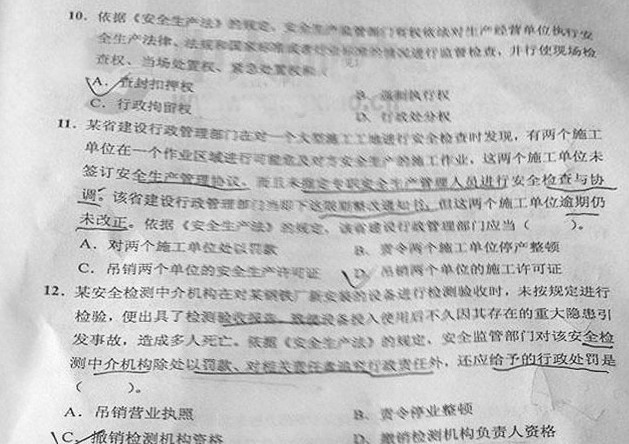 10. 依据《安全生产法》的规定，安全生产监管部门有权依法对生产经营单位执行安
全生产法律、法规和国家标准或者行业标准的情况进行监督检查，并行使现场检
查权、当场处置权、紧急处置权和（
A. 查封扣押权
B. 强制执行权
C. 行政拘留权
D. 行政处分权
11. 某省建设行政管理部门在对一个大型施工工地进行安全检查时发现，有两个施工
单位在一个作业区域进行可能危及对方安全生产的施工作业，这两个施工单位未
签订安全生产管理协议，而且未指定专职安全生产管理人员进行安全检查与协
调。该省建设行政管理部门当即下达限期整改通知书，但这两个施工单位逾期仍
未改正。依据《安全生产法》的规定，该省建设行政管理部门应当（ ）。
A. 对两个施工单位处以罚款
B. 责令两个施工单位停产整顿
C. 吊销两个单位的安全生产许可证
D. 吊销两个单位的施工许可证
12. 某安全检测中介机构在对某钢铁厂新安装的设备进行检测验收时，未按规定进行
检验，便出具了检测验收报告，致使设备投入使用后不久因其存在的重大隐患引
发事故，造成多人死亡。依据《安全生产法》的规定，安全监管部门对该安全检
测中介机构除处以罚款、对相关责任者追究行政责任外，还应给予的行政处罚是
（ ）。
A. 吊销营业执照
B. 责令停业整顿
C. 撤销检测机构资格
D. 撤销检测机构负责人资格